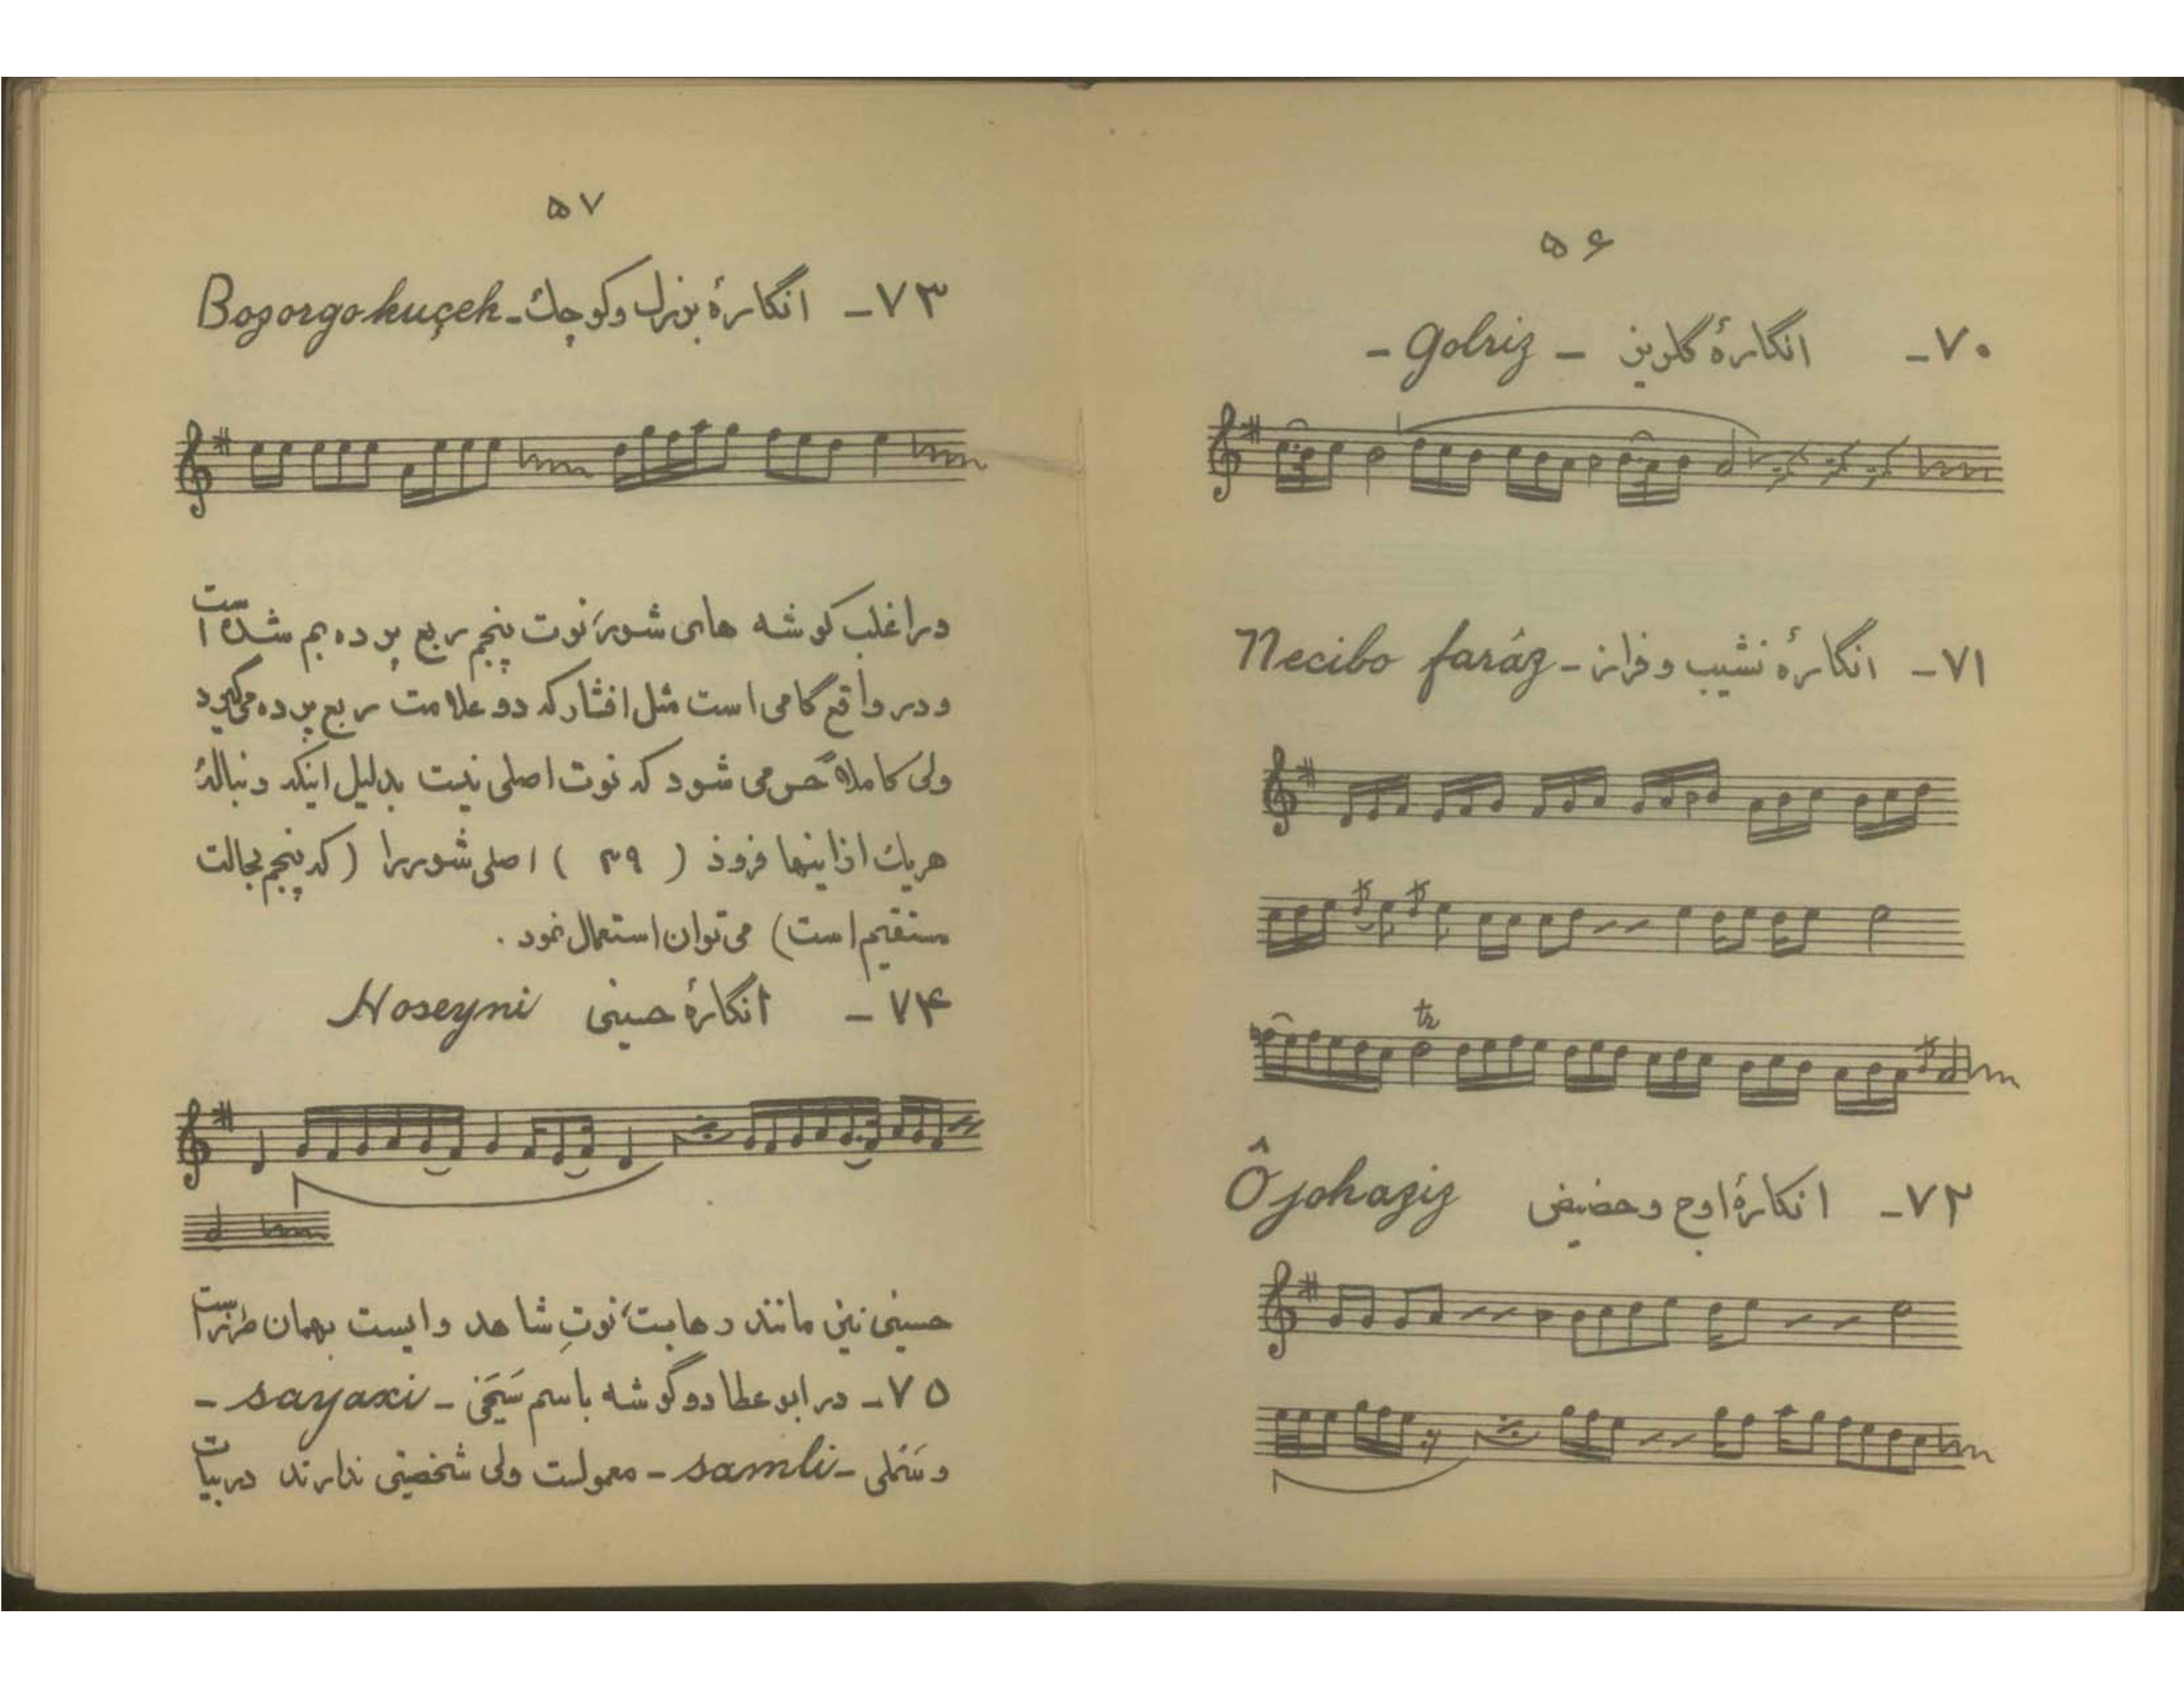 ۵۶
۷۰- انگارهٔ گلریز - Golriz -
۷۱- انگارهٔ نشیب و فراز - Necibo farâz
tr
۷۲- انگارهٔ اوج و حضیض Ôjohaziz
۵۷
۷۳- انگارهٔ بزرگ و کوچک - Bozorgo kuçek
در اغلب گوشه های شور، نوت پنجم ربع پرده بم شده است
و در واقع گامی است مثل افشار که دو علامت ربع پرده می‌گیرد
ولی کاملاً حس می شود که نوت اصلی نیست بدلیل اینکه دنبالهٔ
هریک از اینها فرود ( ۳۹ ) اصلی شور را ( که پنجم بحالت
مستقیم است) می توان استعمال نمود .
۷۴- انگارهٔ حسینی Hoseyni
حسینی نیز مانند رهاب، نوتِ شاهد و ایست بهمان طرز است
۷۵- در ابوعطا دو گوشه باسم سَیَخی - sayaxi -
و سَملی - samli - معمولست ولی شخصیتی ندارند در بیات